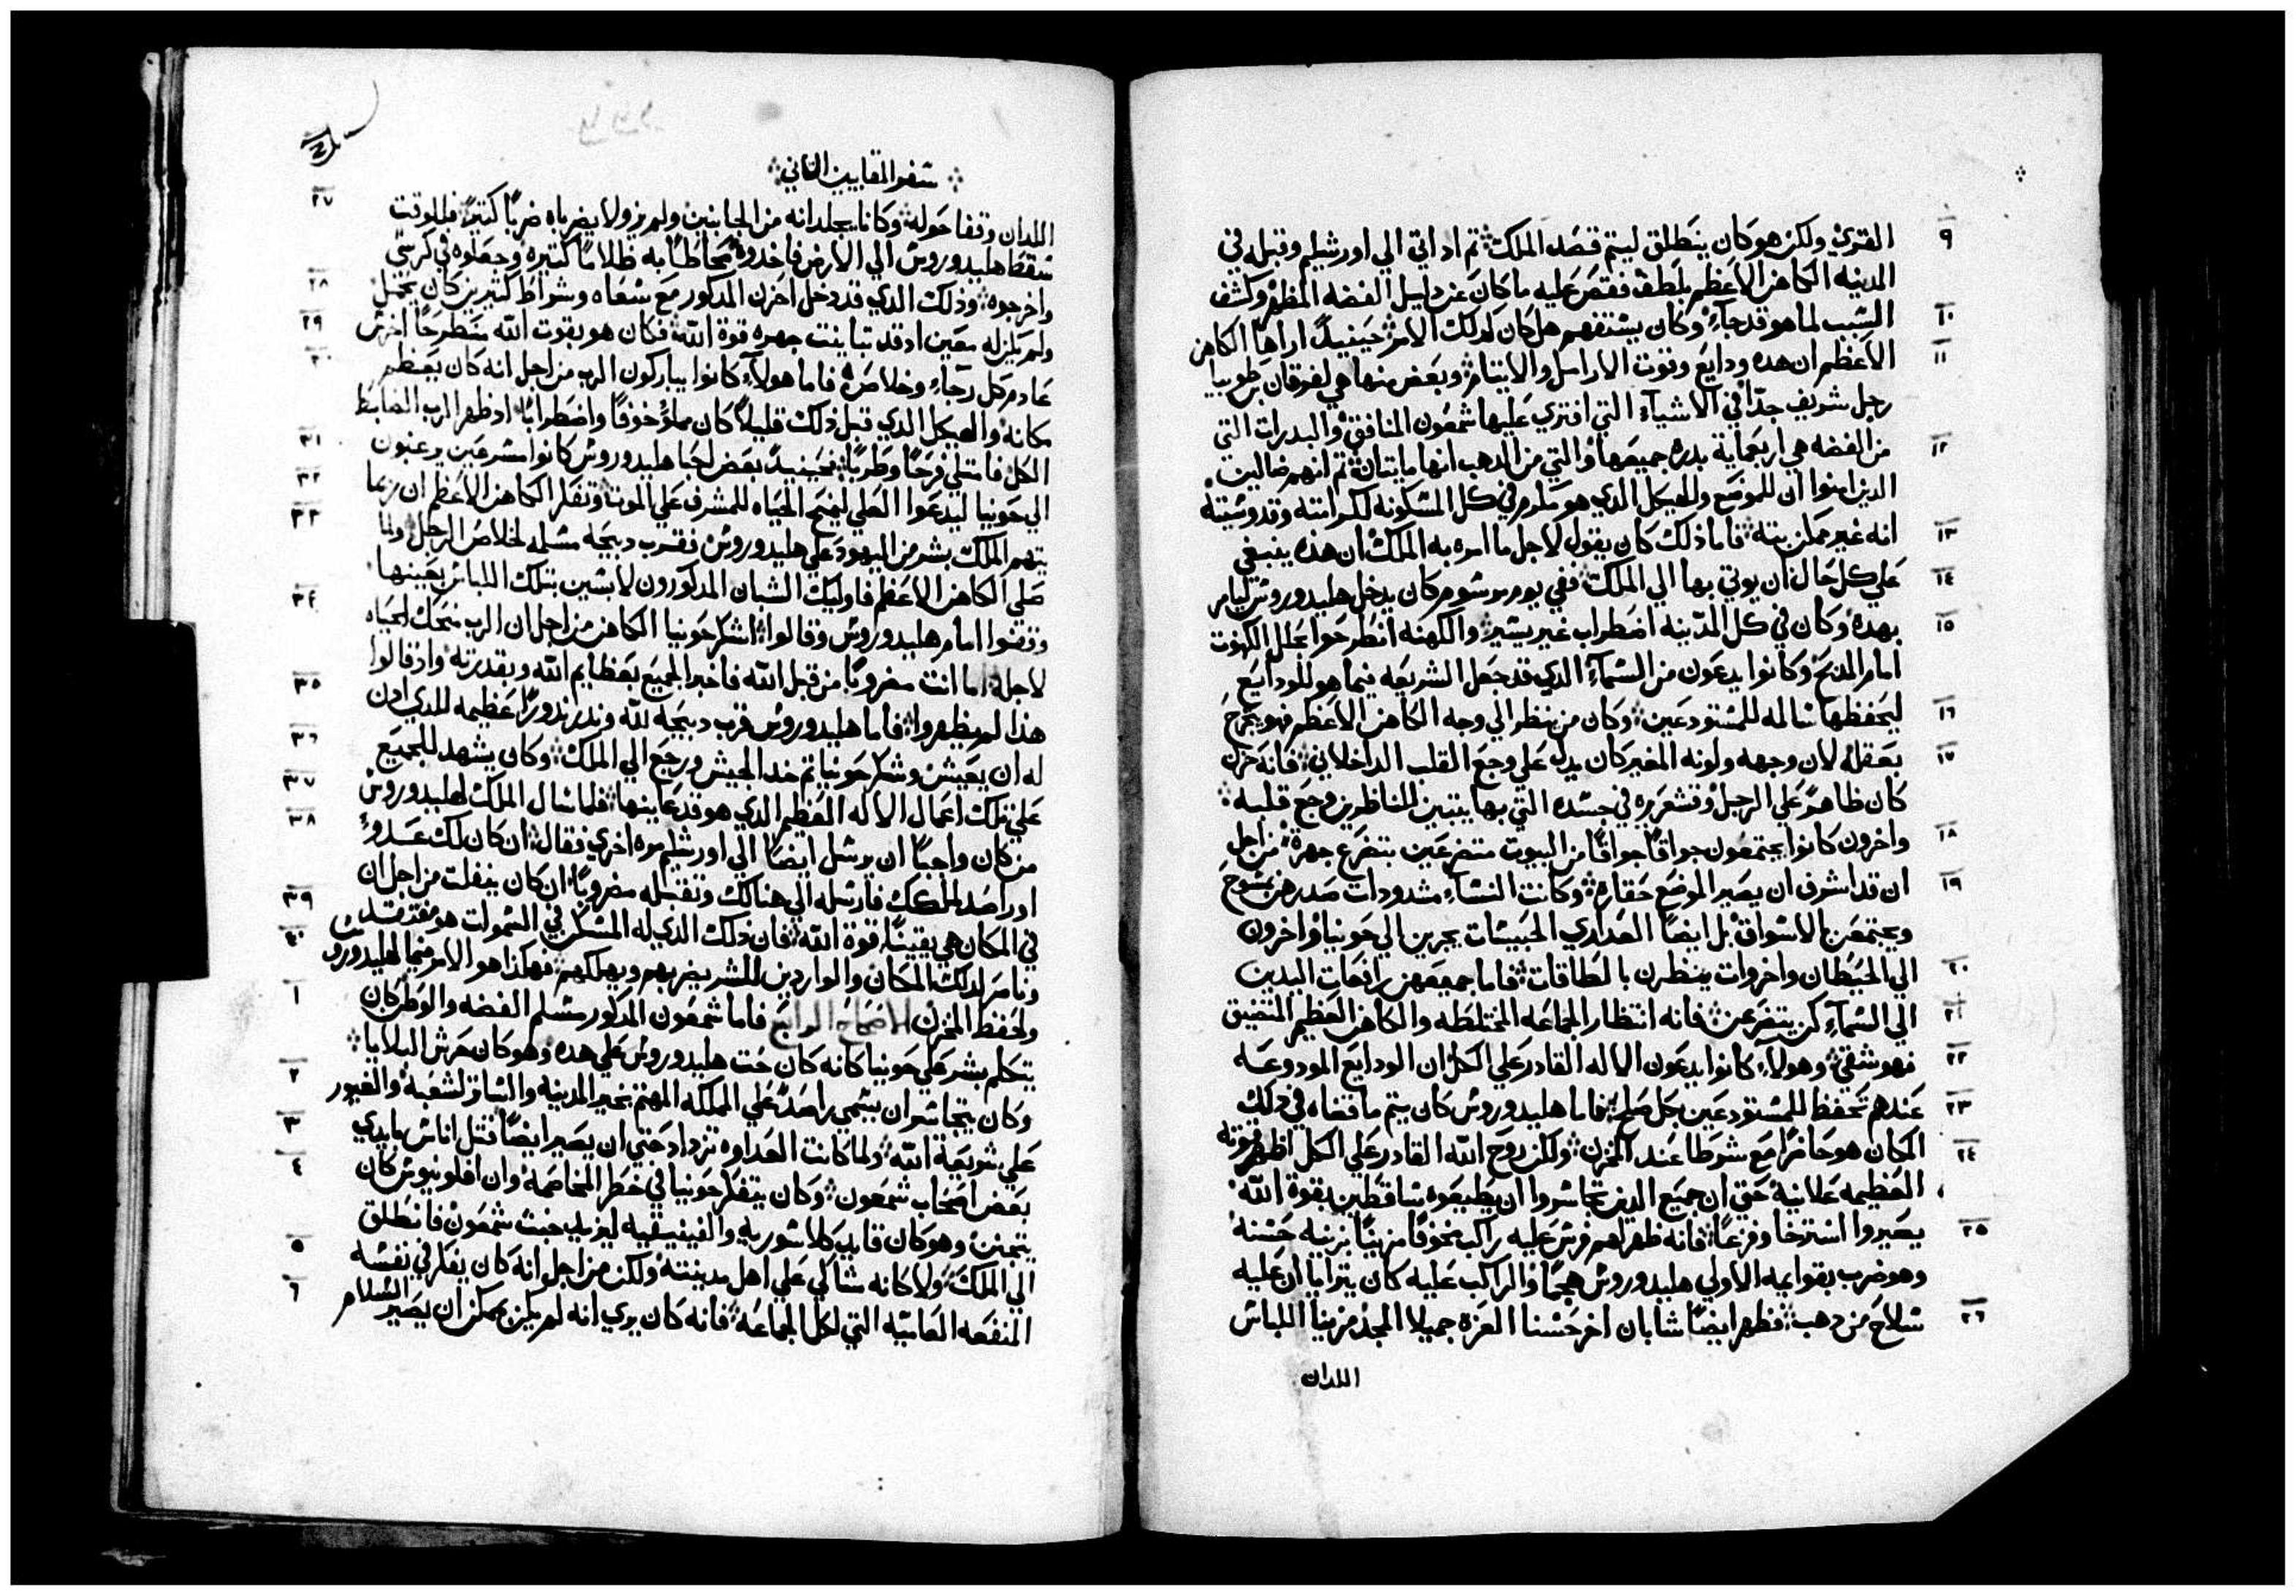 ٩ القري ولكن هو كان ينطلق ليتم قصد الملك ثم اد اتي الي اورشليم وقبل في
المدينه الكاهن الاعظم بلطف فقص عليه ما كان عن دليل الفضه المظهر وكشف
١٠ السبب لما هو قد جآء وكان يستفهم هل كان لدلك الامر حينيدً اراها الكاهن
١١ الاعظم ان هده ودايع وقوت الارامل والايتام وبعض منها هي لهوقان بن طوبيا
رجل شريف جدّاً في الاشيآء التي افتري عليها شمعون المنافق والبدرات التي
١٢ من الفضه هي اربعماية بدره جميعها والتي من الدهب انها مايتان ثم انهم ضالين
الدين امنوا ان للموضع وللهيكل الدي هو مكرم في كل المسكونه لكرامته وقدوسيته
١٣ انه غير ممكن بته فاما ذلك كان يقول لاجل ما امره به الملك ان هذه ينبغي
١٤ علي كل حال ان يوتي بها الي الملك ففي يوم مرسوم كان يدخل هليدوروس ليامر
١٥ بهده وكان في كل المدينه اضطراب غير يسير والكهنه انطرحوا بحلل الكهوت
امام المدبح وكانوا يدعون من السمآء الدي قد جعل الشريعه فيما هو للودايع
١٦ ليحفظها سالمه للمستودعين وكان من ينظر الي وجه الكاهن الاعظم فهو يجرح
١٧ بعقله لان وجهه ولونه المغير كان يدل علي وجع القلب الداخلاني فانه حزن
كان ظاهرً علي الرجل وقشعريره في جسده التي بها يتبين للناظرين وجع قلبه
١٨ واخرون كانوا يجتمعون جواقاً جواقاً من البيوت متضرعين بتضرع جهرة من اجل
١٩ ان قد اشرف ان يصير الموضع حقاره وكانت النسآء مشدودات صدرهن بمسوح
ويجتمعن بالاسواق بل ايضاً العداري الحبيسات يجرين الي حونيا واخرون
٢٠ الي الحيطان واخروات ينظرن بالطاقات فاما جميعهن رافعات اليدين
٢١ الي السمآء كن يتضرعن فانه انتظار الجماعه المختلطه والكاهن العظيم المتضيق
٢٢ فهو شقي وهولآء كانوا يدعون الاله القادر علي الكل ان الودايع المودوعه
٢٣ عندهم تحفظ للمستودعين بكل صلح فاما هليدوروس كان يتم ما قضاه في ذلك
٢٤ المكان هو حاضرا مع شرطا عند المخزن ولكن روح الله القادر علي الكل اظهر قوته
العظيمه علانيه حتي ان جميع الدين تجاسروا ان يطيعوه ساقطين بقوة الله
٢٥ يصيروا استرخا وفزعاً فانه ظهر لهم فرس عليه راكب مخوفاً مزيناً بزينه حسنه
وهو ضرب بقوايمه الاولي هليدوروس هجماً والراكب عليه كان يترايا ان عليه
٢٦ سلاح من دهب فظهر ايضاً شابان اخر حسنا العزه جميلا المجد مزينا اللباس
اللدان
سفر المقابين الثاني
٢٧ اللدان وقفا حوله وكانا يجلدانه من الجانبين ولم يزولا يضرباه ضرباً كتيرً فللوقت
سقط هليدوروس الي الارض فاخدوه محاطاً به ظلاماً كتيره وجعلوه في كرسي
٢٨ واخرجوه وذلك الدي قد دخل اخزن المدكور مع سعاه وشواط كتيرين كان يحتمل
٢٩ ولم يكن له معين اد قد تباينت جهره قوة الله فكان هو بقوت الله منطرحاً اخرس
٣٠ عادم كل رجآء وخلاص فاما هولآء كانوا يباركون الرب من اجل انه كان يعظم
مكانه والهيكل الدي قبل ذلك قليلاً كان مملؤ خوفاً واضطراباً اد ظهر الرب الضابط
٣١ الكل فامتلي فرحاً وطرباً فحينيدً بعض احبا هليدوروس كانوا مسرعين يرغبون
٣٢ الي حونيا ليدعوا العلي ليمنح الحياه للمشرف علي الموت وتفكر الكاهن الاعظم ان ربما
٣٣ يتهم الملك بشر من اليهود علي هليدوروس فقرب دبيحه مسلمه لخلاص الرجل ولما
صلي الكاهن الاعظم فاوليك الشبان المدكورون لابسين بتلك اللباس بعينها
٣٤ وقفوا امام هليدوروس وقالوا اشكر حونيا الكاهن من اجل ان الرب منحك الحياه
لاجله اما انت مضروباً من قبل الله فاخبر الجميع بعظايم الله وبقدرته واذ قالوا
٣٥ هذا لم يظهروا فاما هليدوروس قرب دبيحه لله وندر ندوراً عظيمه للدي ادن
٣٦ له ان يعيش وشكر حونيا ثم خد الجيش ورجع الي الملك وكان يشهد للجميع
٣٧ علي تلك اعمال الاله العظيم الدي هو قد عاينها فلما سال الملك لهليدوروس
٣٨ من كان واجباً ان يرسل ايضاً الي اورشليم مره اخري فقال ان كان لك عدوٌ
او راصد لملكك فارسله الي هنالك وتقبله مضروباً ان كان ينفلت من اجل ان
٣٩ في المكان هي يقيناً قوة الله فان ذلك الدي له المسكن في السموات هو مفتقد
٤٠ ونامر لدلك المكان والواردين للشر يضربهم ويهلكهم فهكذا هو الامر فيما لهليدوروس
١ ولحفظ المخزن الاصحاح الرابع فاما شمعون المدكور مسلم الفضه والوطن كان
يتكلم بشر علي حونيا كانه كان حت هليدوروس علي هده وهو كان حرش البلايا
٢ وكان يتجاسر ان يسمي راصدً علي المملكه المهتم بخير المدينه والساتر لشعبه والغيور
٣ علي شريعة الله ولما كانت العداوه تزداد حتي ان يصير ايضاً قتل اناس بايدي
٤ بعض اصحاب شمعون وكان يتفكر حونيا في خطر المخاصمه وان افلونيوس كان
يتجنن وهو كان قايد كلاسوريه والفينيقيه ليزيد خبث شمعون فانطلق
٥ الي الملك ولا كانه شاكي علي اهل مدينته ولكن من اجل انه كان يفكر في نفسه
٦ المنفعه العاميه التي لكل الجماعه فانه كان يري انه لم يكن يمكن ان يصير السلام